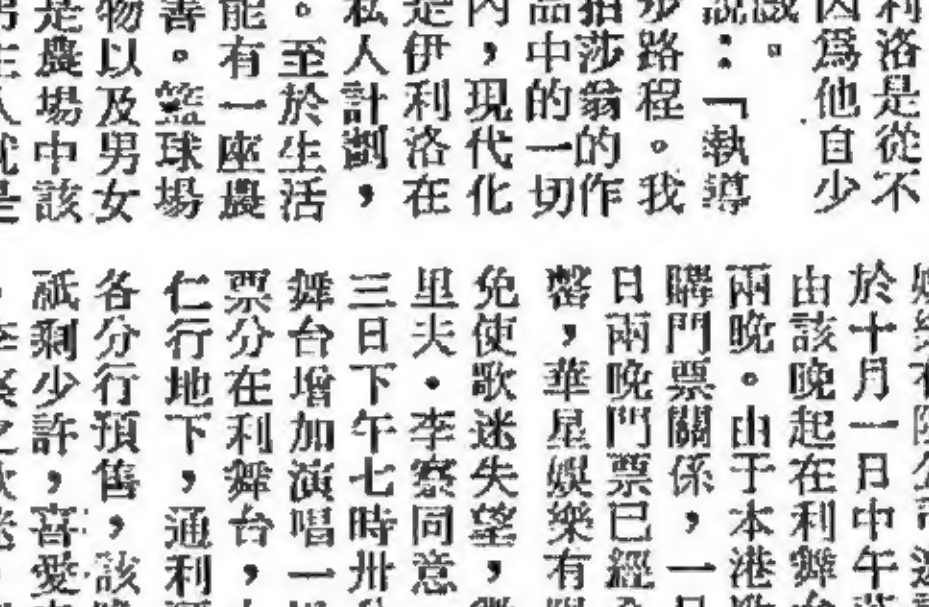 利洛是從不
因爲他自少
「執導
步路程。我
拍莎翁的作
品中的一切
內,現代化
是伊利洛在
私人計劃,
。至於生活
能有一座農
善。籃球場
物以及男女
是農場中該
於十月一日中午
由該晚起在利舞
兩晚。由于本港
購門票關係,一
日兩晚門票已經
罄,華星娛樂有
免使歌迷失望,
里夫·李察同意
三日下午七時卅
舞台增加演唱一
票分在利舞台,
仁行地下,通利
各分行預售,該
祇剩少許,喜愛